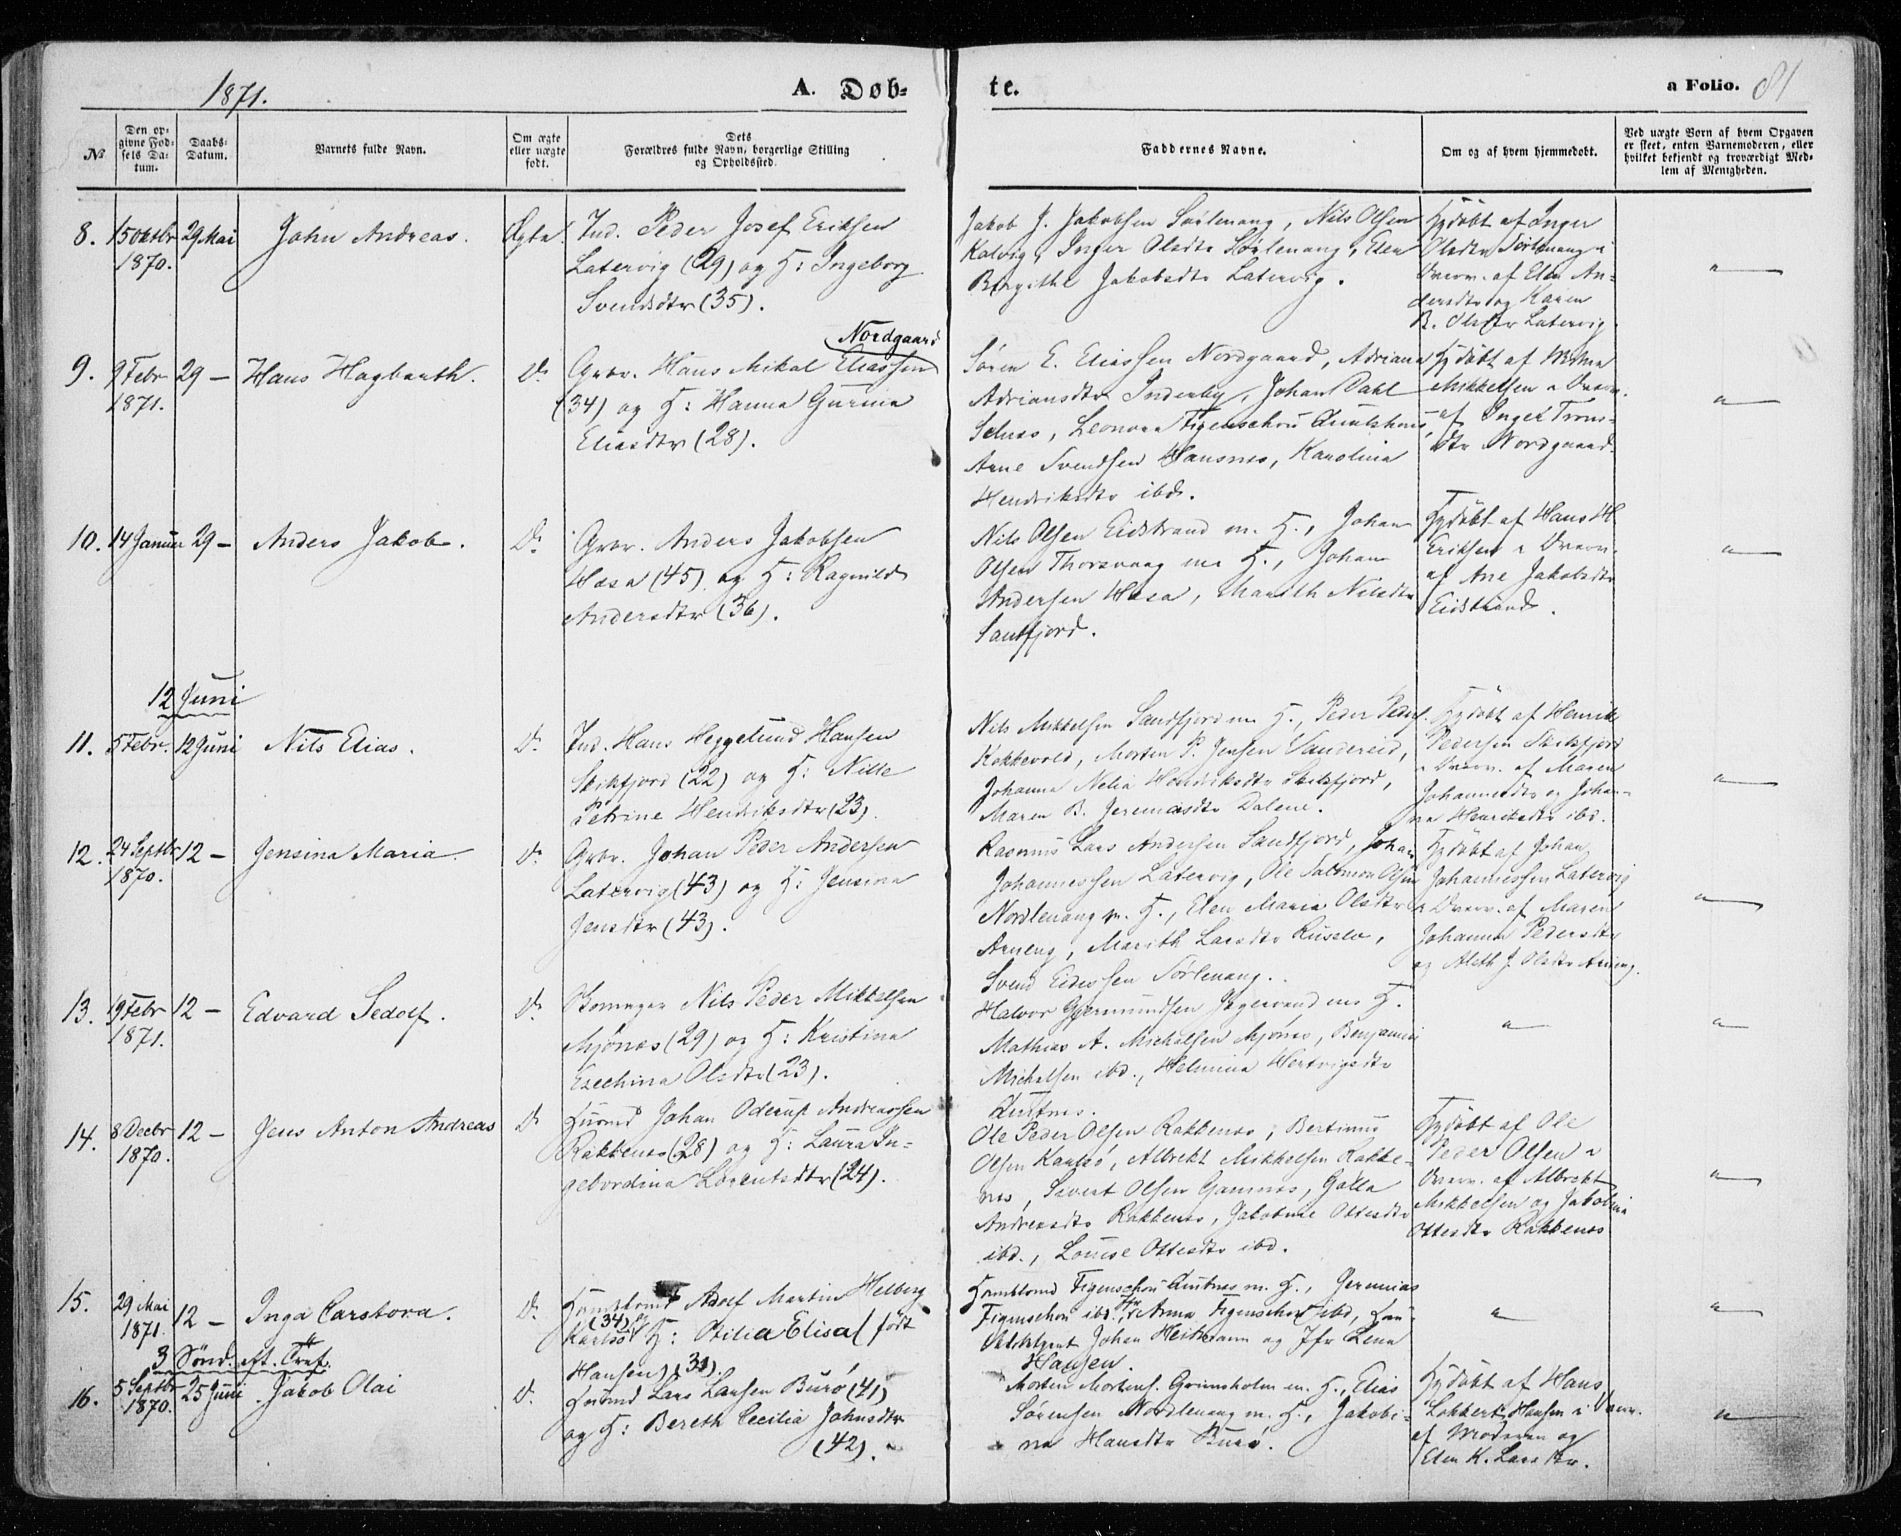 1871.
A. Døb-
te.
a Folio. 81
No
Den opgivne Fødsels Datum.
Daabs-Datum.
Barnets fulde Navn.
Om ægte eller uægte født.
Dets Forældres fulde Navn, borgerlige Stilling og Opholdssted.
Faddernes Navne.
Om og af hvem hjemmedøbt.
Ved uægte Børn af hvem Opgaven er skeet, enten Barnemoderen, eller hvilket bekjendt og troværdigt Medlem af Menigheden.
8. 15 Oktbr 1870. 29 Mai John Andreas. Ægte.
Ind. Peder Josef Eriksen
Latervig (29) og H: Ingeborg
Svendsdtr (35).
Jakob J. Jakobsen Sørlenang, Nils Olsen
Kalvig, Inger Olsdtr Sørlenang, Elen
Birgithe Jakobsdtr Latervig.
Hjdøbt af Inger
Olsdtr Sørlenang i
Overv. af Elen An-
dersdtr og Karen
B. Olsdtr Latervig.
9. 9 Febr 1871. 29 – Hans Hagbarth. Do
Nordgaard
Grbr. Hans Mikal Eliassen
(34) og H: Hanna Gurine
Eliasdtr (28).
Søren E. Eliassen Nordgaard, Adriana
Adriansdtr Inderby, Johan Dahl
Selnes, Leonora Figenschou
Arne Svendsen Hansnes, Karolina
Hendriksdtr ibd.
Hjdøbt af
Mikkelsen i Overv.
af Inger Trons-
dtr Nordgaard.
10. 14 Januar 29 – Anders Jakob. Do
Grbr. Anders Jakobsen
Hæsa (45) og H: Ragnild
Andersdtr (36).
Nils Olsen Eidstrand m. H., Johan
Olsen Thorsvaag m. H., Johan
Andersen Hæsa, Marith Nilsdtr
Sandfjord.
Hjdøbt af Hans H.
Eriksen i Overv.
af Ane Jakobsdtr
Eidstrand.
12 Juni
11. 5 Febr. 12 Juni Nils Elias. Do
Ind. Hans Heggelund Hansen
Skikfjord (22) og H: Nille
Petrine Hendriksdtr (23).
Nils Mikkelsen Sandfjord m. H., Peder Peders.
Kokkevold, Morten P. Jensen Vandereid,
Johanna Nelia Hendriksdtr Skikfjord,
Maren B. Jeremiasdtr Dalene.
Hjdøbt af Henrik
Pedersen Skikfjord
i Overv. af Maren
Johannesdtr og Johan-
na Henriksdtr ibd.
12. 24 Septbr 1870. 12 – Jensina Maria. Do
Grbr. Johan Peder Andersen
Latervig (43) og H: Jensina
Jensdtr (43).
Rasmus Lars Andersen Sandfjord, Johan
Johannessen Latervig, Ole Salomon Olsen
Nordlenang m. H., Elen Maria Olsdtr
Arneng, Marith Larsdtr Russelv,
Svend Sørlenang.
Hjdøbt af Johan
Johannessen Latervig
i Overv. af Maren
Johanna Pedersdtr
og Aleth J. Olsdtr Arneng.
13. 19 Febr 1871. 12 – Edvard Sedolf. Do
Nils Peder Mikkelsen
Mjønes (29) og H: Kristina
Esechina Olsdtr (23).
Halvor Gjermundsen Jægervand m. H.
Mathias A. Michelsen Mjønes, Benjamin
Michelsen ibd., Helmina Hertvigsdtr
14. 8 Decbr 1870. 12 – Jens Anton Andreas Do
Husmd Johan Oderup Andreassen
Rakkenes (28) og H: Laura In-
gebordina Lorentsdtr (24).
Ole Peder Olsen Rakkenes, Bertinus
Olsen Karlsø, Albrekt Mikkelsen Rakke-
nes, Sivert Olsen Gamnes, Golla
Andreasdtr Rakkenes, Jakobine Ottesdtr
ibd., Louise Ottesdtr ibd.
Hjdøbt af Ole
Peder Olsen i
Overv. af Albrekt
Mikkelsen og Jakobine
Ottesdtr Rakkenes
15. 29 Mai 1871. 12 – Inga Carstova. Do
Adolf Martin Helberg
Karlsø (34) og H: Otilia Elisa (født
Hansen) (31).
Figenschou m. H., Jeremias
Figenschou ibd. Jfr Anna Figenschou ibd,
Johan Heitmann og Jfr Lena
Hansen.
3 Sønd. eft. Tref.
16. 5 Septbr 1870. 25 Juni Jakob Olai Do
Husmd Lars Larsen Burø (41)
og H: Bereth Cecilia Johnsdtr
(42).
Morten Mortens. Grimsholm m. H., Elias
Sørensen Nordlenang m. H., Jakobi-
na Hansdtr Burø.
Hjdøbt af Hans
Lokkert Hansen i Overv.
af Moderen og
Elen K. Larsdtr.